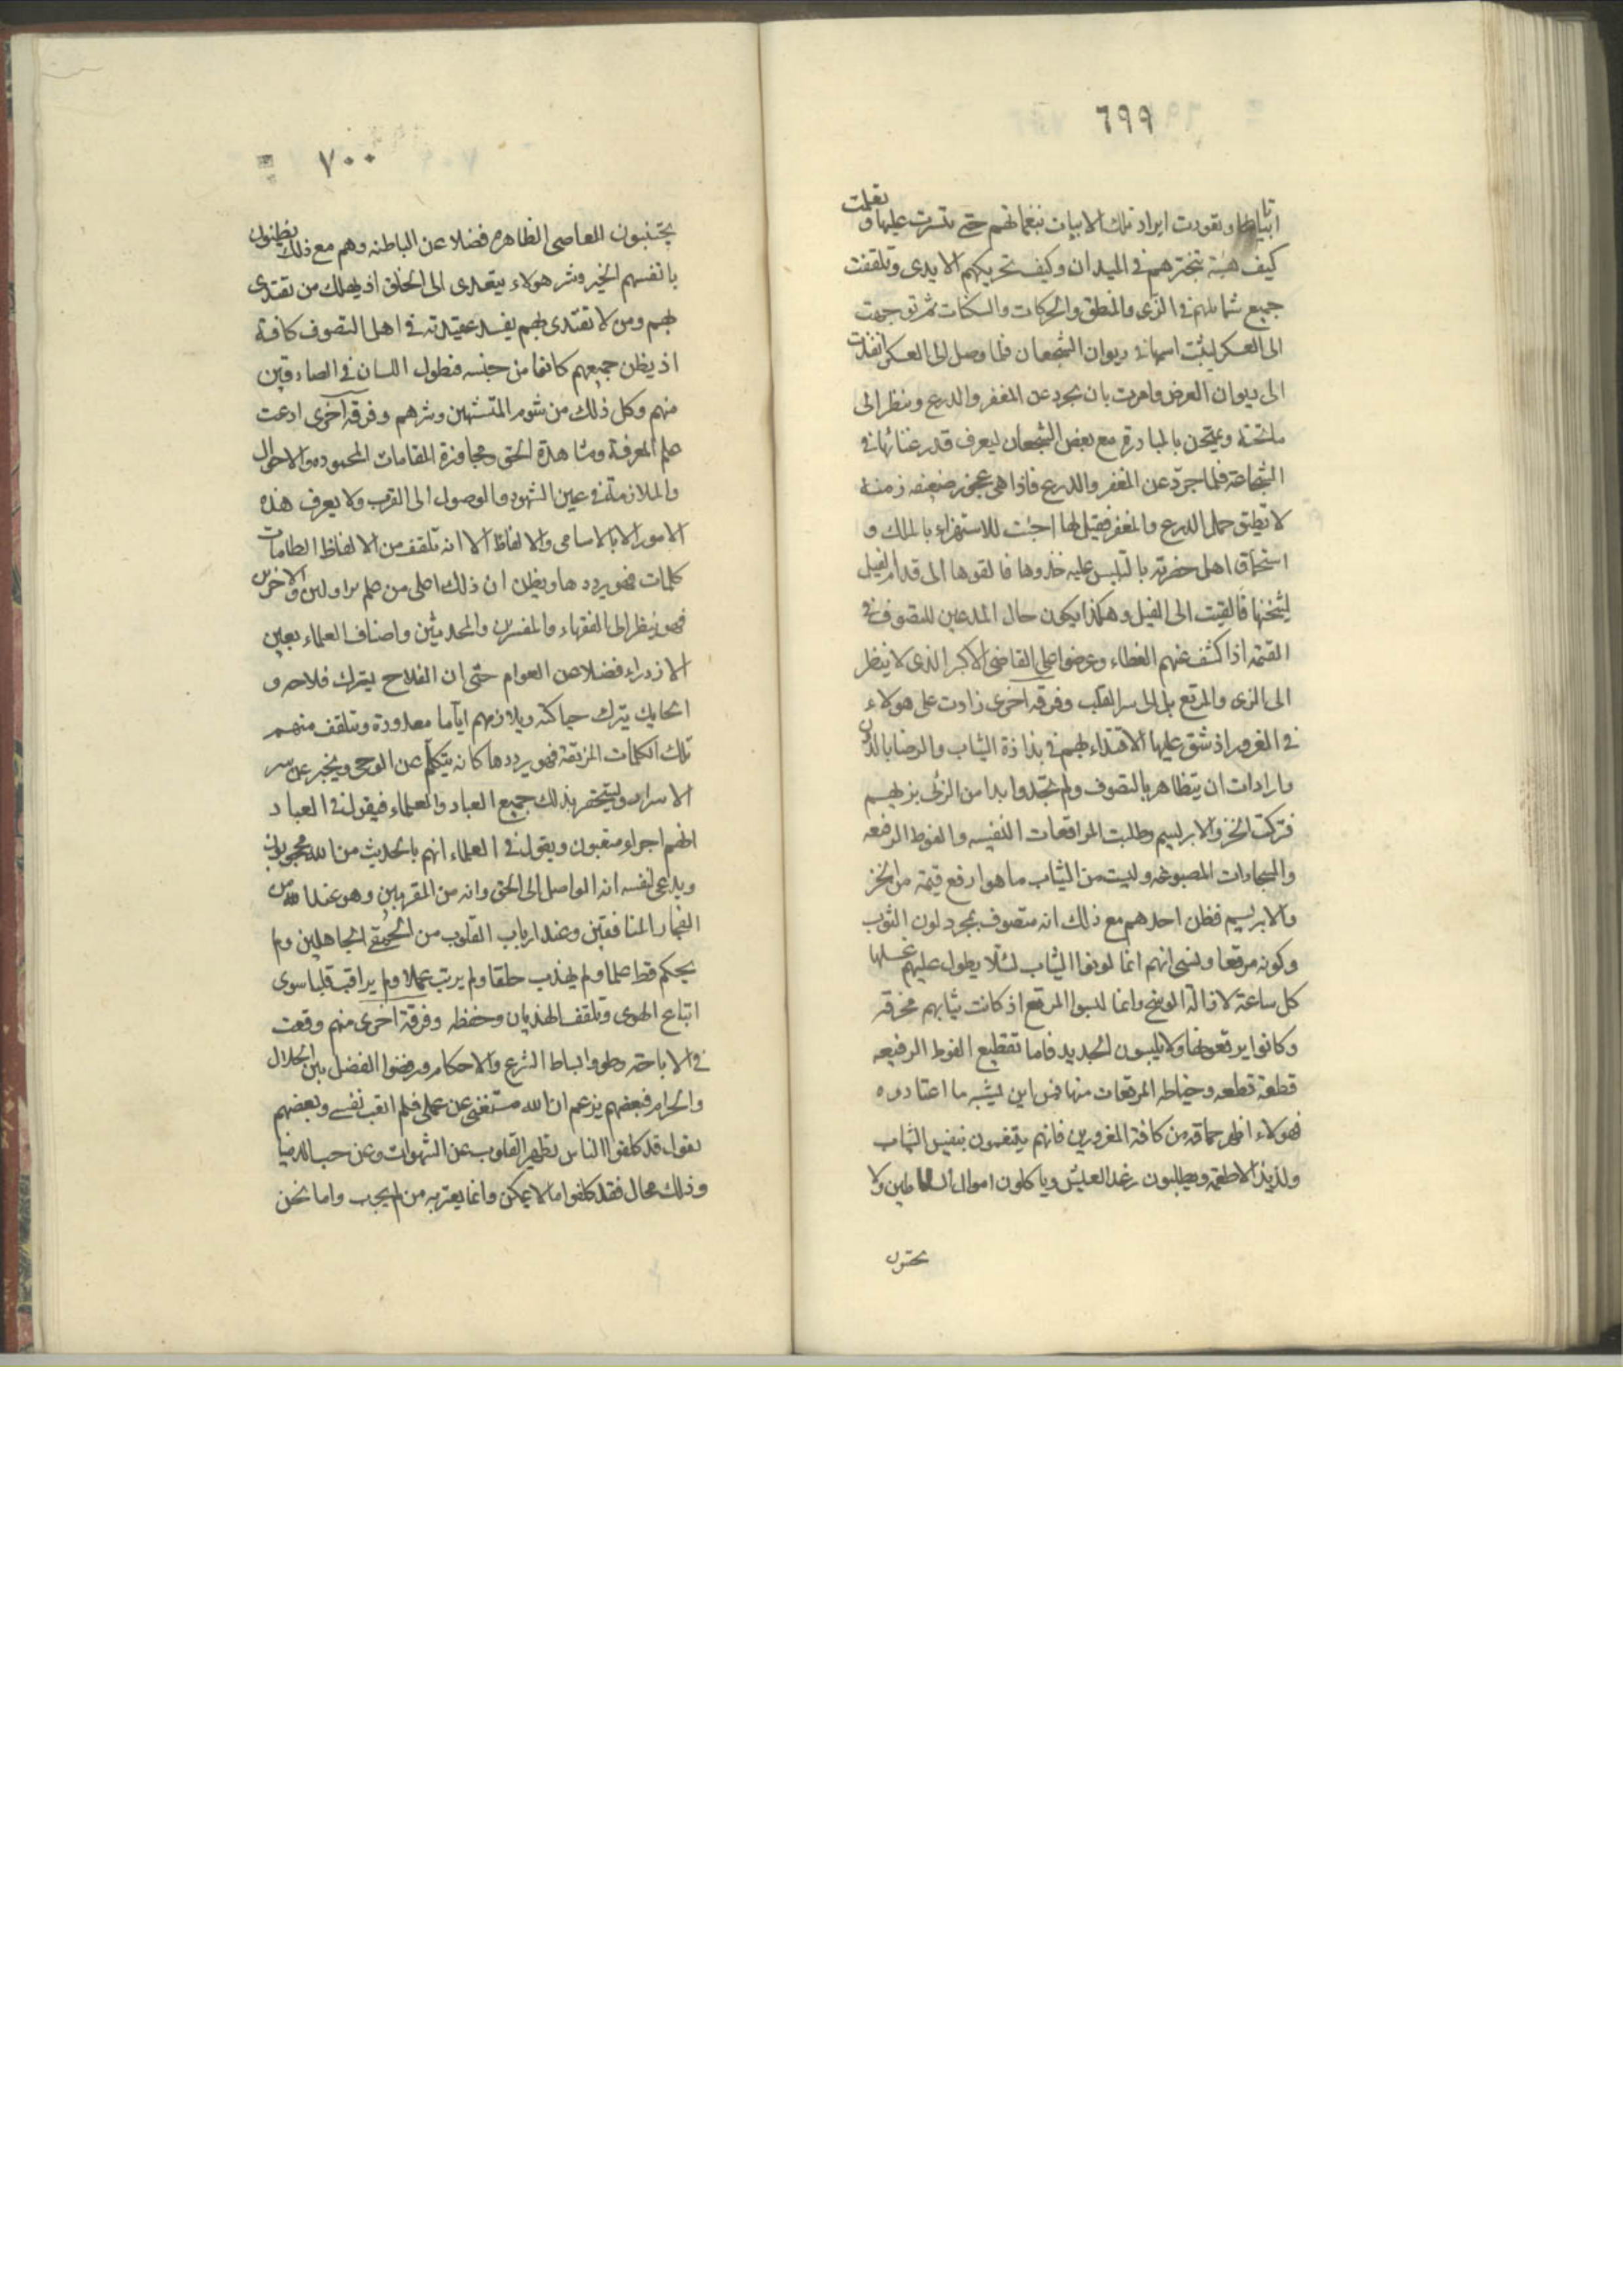 ٦٩٩
ابياتا وتعودت ايراد تلك الابيات بنغماتهم حتى تيسرت عليها وتعلمت
كيف هيئة تبخترهم فى الميدان وكيف تحريكهم الايدى وتلقفت
جميع شمائلهم فى الزى والمنطق والحركات والسكنات ثم توجهت
الى العسكر ليثبت اسمها فى ديوان الشجعان فلما وصل الى العسكر انفذت
الى ديوان العرض وامرت بان يجرد عن المغفر والدرع وينظر الى
ماتحته ويمتحن بالمبادرة مع بعض الشجعان ليعرف قدر غنائها فى
الشجاعة فلما جرد عن المغفر والدرع فاذا هى عجوز ضعيفه زمنة
لا تطيق حمل الدرع والمغفر فقيل لها اجئت للاستهزاء بالملك و
استحماق اهل حضرته بالتلبس عليه خذوها فالقوها الى قدام الفيل
ليثخنها فالقيت الى الفيل وهكذا يكون حال المدعين للتصوف فى
القيمة اذا كشف عنهم الغطاء وعرضوا على القاضى الاكبر الذى لا ينظر
الى الزى والمرقع بل الى سر القلب وفرقه اخرى زادت على هولاء
فى الغرور اذ شق عليها الاقتداء بهم فى بذاذة الثياب والرضا بالدون
وارادات ان يتظاهر بالتصوف ولم تجدوا بدا من الزى بزيهم
فتركت الخز والابريسم وطلبت المراقعات النفيسه والفوط الرفعه
والسجادات المصبوغه ولبست من الثياب ما هو ارفع قيمة من الخز
والابريسم فظن احدهم مع ذلك انه متصوف بمجرد لون الثوب
وكونه مرقعا ونسى انهم انما لونوا الثياب لئلا يطول عليهم غسلها
كل ساعة لازالة الوسخ وانما لبسوا المرقع اذ كانت ثيابهم مخرقه
وكانوا يرقعونها ولا يلبسون الجديد فاما تقطيع الفوط الرفيعه
قطعة قطعه وخياطه المرقعات منها فمن اين يشبه ما اعتادوه
فهولاء اظهر حماقه من كافة المغرورين فانهم يتنعمون بنفيس الثياب
ولذيذ الاطعمة ويطلبون رغد العيش وياكلون اموال السلاطين ولا
٧٠٠
يجتنبون المعاصى الظاهره فضلا عن الباطنه وهم مع ذلك يظنون
بانفسهم الخير وشر هولاء يتعدى الى الخلق اذ يهلك من تقتدى
بهم ومن لا تقتدى بهم يفسد عقيدته فى اهل التصوف كافة
اذ يظن جميعهم كانوا من جنسه فطول اللسان فى الصادقين
منهم وكل ذلك من شوم المتشبهين وشرهم وفرقه اخرى ادعت
علم المعرفة ومشاهدة الحق ومجاوزة المقامات المحموده والاحوال
والملازمة فى عين الشهود والوصول الى القرب ولا يعرف هذه
الامور الا بالاسامى والالفاظ الا انه تلقف من الالفاظ الطامات
كلمات فهو يرددها ويظن ان ذلك اعلى من علم الاولين والاخرين
فهو ينظر الى الفقهاء والمفسرين والمحدثين واصناف العلماء بعين
الازدراء فضلا عن العوام حتى ان الفلاح ليترك فلاحه و
الحايك يترك حياكته ويلازمهم اياما معدودة وتتلقف منهم
تلك الكلمات المزيفة فهو يرددها كانه يتكلم عن الوحى ويخبر عن سر
الاسرار ويستحقر بذلك جميع العباد والعلماء فيقول فى العباد
انهم اجراء متعبون ويقول فى العلماء انهم بالحديث من الله محجوبون
ويدعى لنفسه انه الواصل الى الحق وانه من المقربين وهو عند الله من
الفجار المنافقين وعند ارباب القلوب من الحمقى الجاهلين ولم
يحكم قط علما ولم يهذب خلقا ولم يرتب عملا ولم يراقب قلبا سوى
اتباع الهوى وتلقف الهذيان وحفظه وفرقة اخرى منهم وقعت
فى الاباحة وطووا بساط الشرع والاحكام ورفضوا الفضل بين الحلال
والحرام فبعضهم يزعم ان الله مستغنى عن عملى فلم اتعب نفسى وبعضهم
يقول قد كلفوا الناس تطهير القلوب عن الشهوات وعن حب الدنيا
وذلك محال فقد كلفوا ما لا يمكن وانما يغتر به من لم يجرب واما نحن